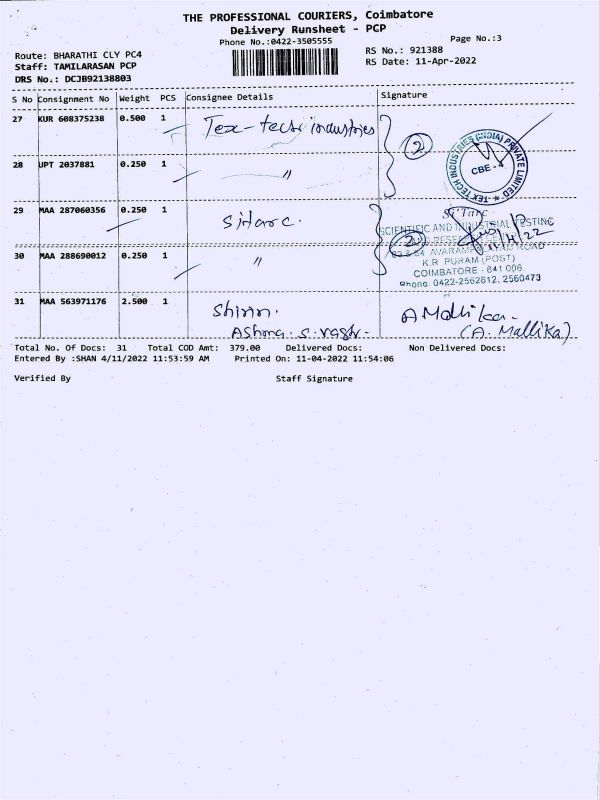 THE PROFESSIONAL COURIERS, Coimbatore
Delivery Runsheet - PCP
Phone No.:0422-3505555
Page No.:3
Route: BHARATHI CLY PC4
RS No.: 921388
Staff: TAMILARASAN PCP
RS Date: 11-Apr-2022
DRS No.: DCJB92138803
S No Consignment No Weight PCS Consignee Details Signature
27 KUR 608375238 0.500 1 Tex-tech industries
2
TEX TECH INDUSTRIES (INDIA) PRIVATE LIMITED
CBE - 4
28 UPT 2037881 0.250 1 "
29 MAA 287060356 0.250 1 Sitarc.
Sitarc
SCIENTIFIC AND INDUSTRIAL TESTING
2
ROAD
30 MAA 288690012 0.250 1 "
K.R. PURAM (POST)
COIMBATORE - 641 006
Phone: 0422-2562612, 2560473
31 MAA 563971176 2.500 1 A Mallika
(A. Mallika)
Total No. Of Docs: 31 Total COD Amt: 379.00 Delivered Docs: Non Delivered Docs:
Entered By :SHAN 4/11/2022 11:53:59 AM Printed On: 11-04-2022 11:54:06
Verified By Staff Signature